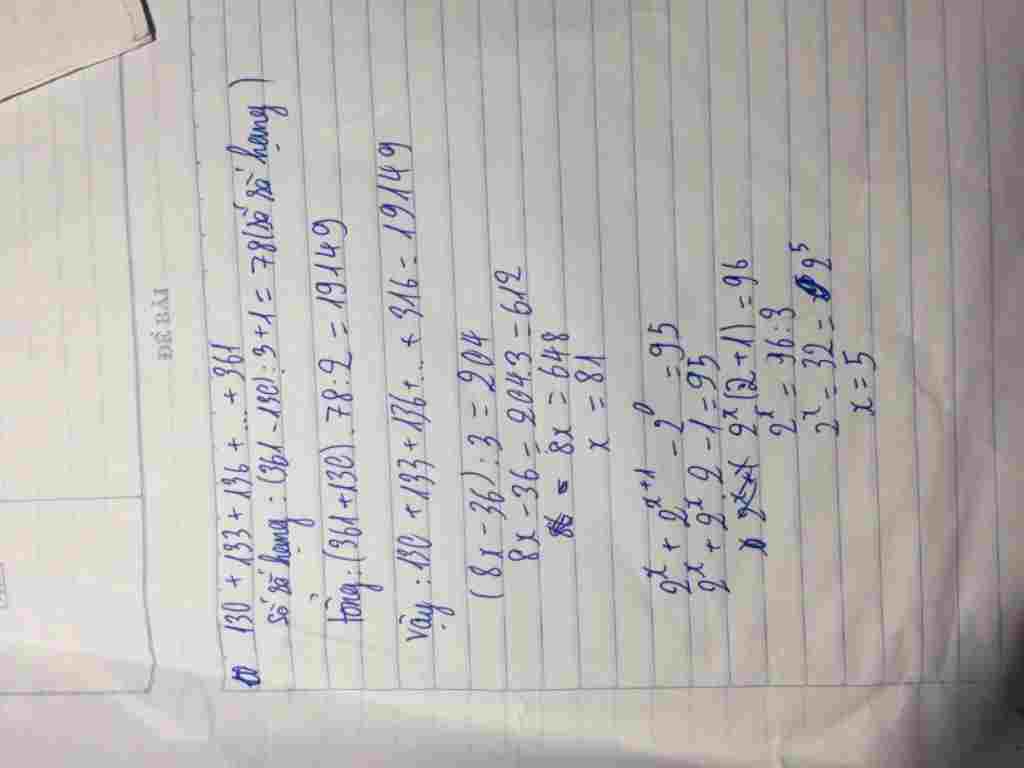 ĐỀ BÀI
130 + 133 + 136 + ... + 361
Số số hạng : (361 - 130) : 3 + 1 = 78 (số số hạng)
Tổng : (361 + 130) . 78 : 2 = 19149
Vậy : 130 + 133 + 136 + ... + 316 = 19149
(8x - 36) : 3 = 204
8x - 36 = 204.3 = 612
8x = 648
x = 81
2^x + 2^{x+1} - 2^0 = 95
2^x + 2^x . 2 - 1 = 95
2^x (2 + 1) = 96
2^x = 96 : 3
2^x = 32 = 2^5
x = 5